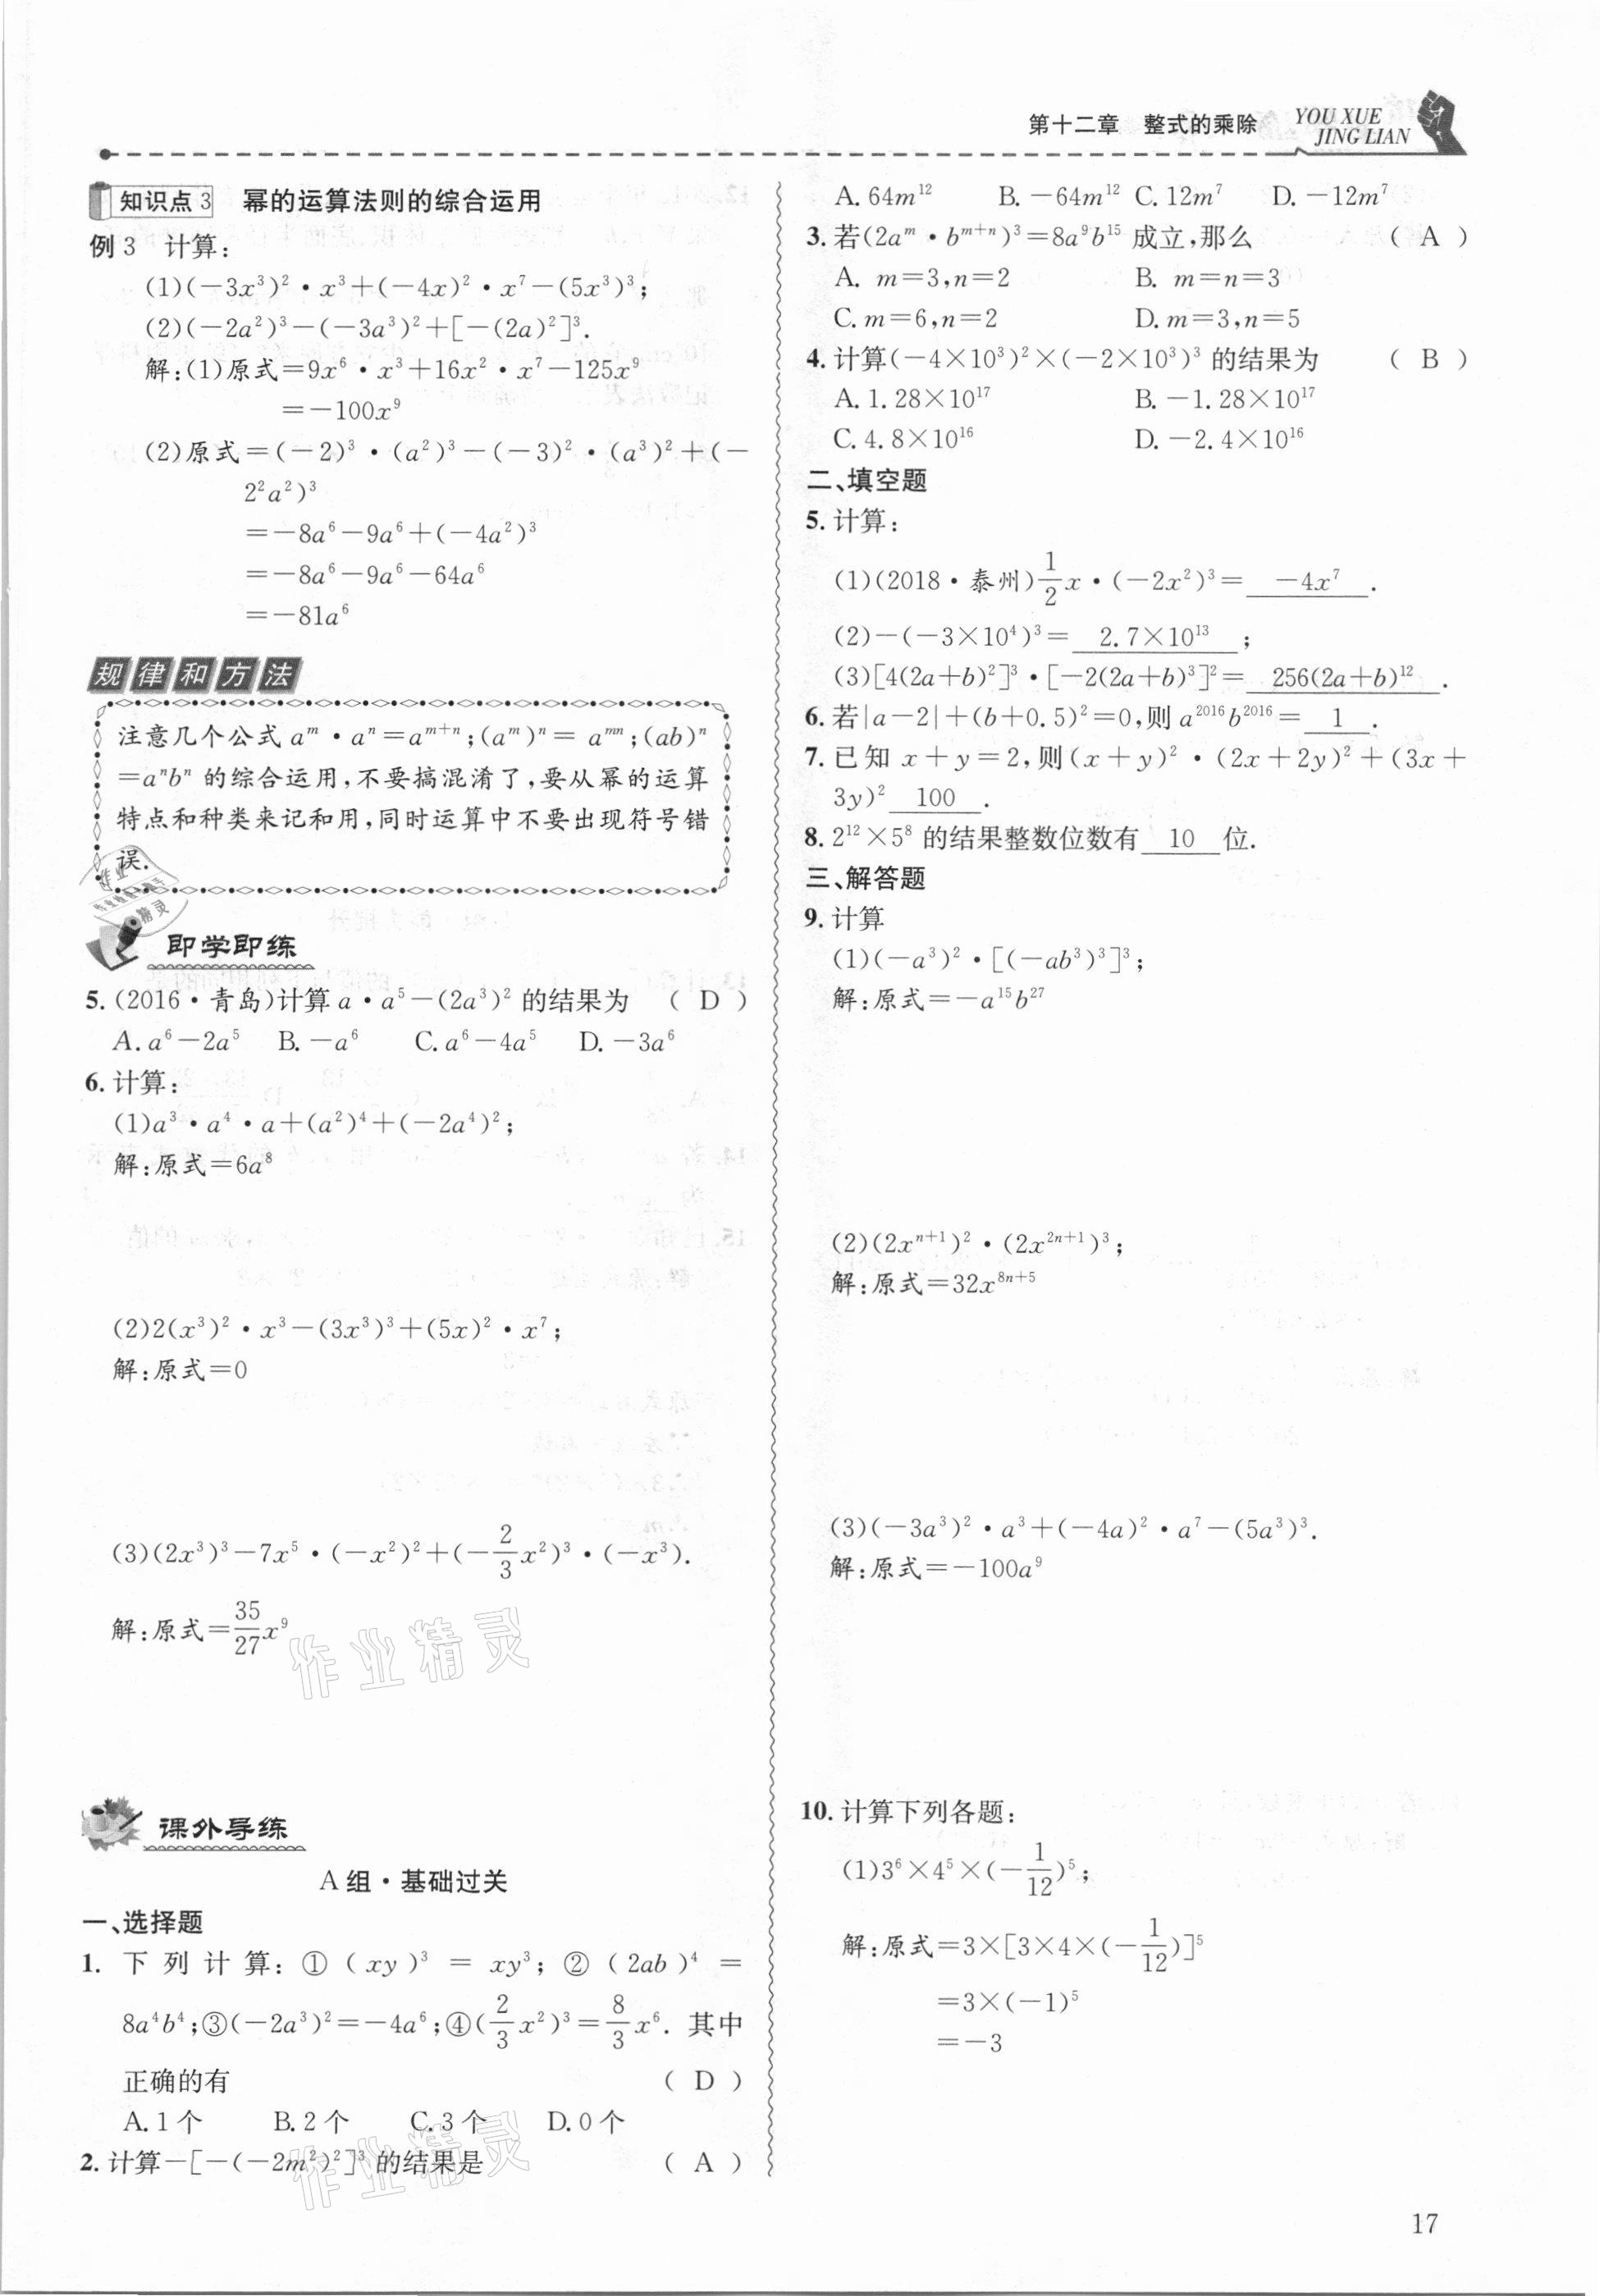 第十二章　整式的乘除
YOU XUE
JING LIAN
知识点3　幂的运算法则的综合运用
例3　计算：
(1)(−3x³)²·x³+(−4x)²·x⁷−(5x³)³；
(2)(−2a²)³−(−3a³)²+[−(2a)²]³.
解：(1)原式=9x⁶·x³+16x²·x⁷−125x⁹
=−100x⁹
(2)原式=(−2)³·(a²)³−(−3)²·(a³)²+(−
2²a²)³
=−8a⁶−9a⁶+(−4a²)³
=−8a⁶−9a⁶−64a⁶
=−81a⁶
规律和方法
注意几个公式 aᵐ·aⁿ=aᵐ⁺ⁿ；(aᵐ)ⁿ= aᵐⁿ；(ab)ⁿ
=aⁿbⁿ 的综合运用，不要搞混淆了，要从幂的运算
特点和种类来记和用，同时运算中不要出现符号错
误.
即学即练
5. (2016·青岛)计算 a·a⁵−(2a³)² 的结果为 （ D ）
A. a⁶−2a⁵　B. −a⁶　C. a⁶−4a⁵　D. −3a⁶
6. 计算：
(1)a³·a⁴·a+(a²)⁴+(−2a⁴)²；
解：原式=6a⁸
(2)2(x³)²·x³−(3x³)³+(5x)²·x⁷；
解：原式=0
(3)(2x³)³−7x⁵·(−x²)²+(−2/3x²)³·(−x³).
解：原式=35/27x⁹
作业精灵
课外导练
A组·基础过关
一、选择题
1. 下列计算：①(xy)³=xy³；②(2ab)⁴=
8a⁴b⁴；③(−2a³)²=−4a⁶；④(2/3x²)³=8/3x⁶. 其中
正确的有 （ D ）
A. 1个　B. 2个　C. 3个　D. 0个
2. 计算−[−(−2m²)²]³ 的结果是 （ A ）
作业精灵
A. 64m¹²　B. −64m¹²　C. 12m⁷　D. −12m⁷
3. 若(2aᵐ·bᵐ⁺ⁿ)³=8a⁹b¹⁵ 成立，那么 （ A ）
A. m=3,n=2　B. m=n=3
C. m=6,n=2　D. m=3,n=5
4. 计算(−4×10³)²×(−2×10³)³ 的结果为 （ B ）
A. 1.28×10¹⁷　B. −1.28×10¹⁷
C. 4.8×10¹⁶　D. −2.4×10¹⁶
二、填空题
5. 计算：
(1)(2018·泰州)1/2x·(−2x²)³= −4x⁷ .
(2)−(−3×10⁴)³= 2.7×10¹³ ；
(3)[4(2a+b)²]³·[−2(2a+b)³]²= 256(2a+b)¹² .
6. 若|a−2|+(b+0.5)²=0,则 a²⁰¹⁶b²⁰¹⁶= 1 .
7. 已知 x+y=2,则(x+y)²·(2x+2y)²+(3x+
3y)² 100 .
8. 2¹²×5⁸ 的结果整数位数有 10 位.
三、解答题
9. 计算
(1)(−a³)²·[(−ab³)³]³；
解：原式=−a¹⁵b²⁷
(2)(2xⁿ⁺¹)²·(2x²ⁿ⁺¹)³；
解：原式=32x⁸ⁿ⁺⁵
(3)(−3a³)²·a³+(−4a)²·a⁷−(5a³)³.
解：原式=−100a⁹
10. 计算下列各题：
(1)3⁶×4⁵×(−1/12)⁵；
解：原式=3×[3×4×(−1/12)]⁵
=3×(−1)⁵
=−3
17